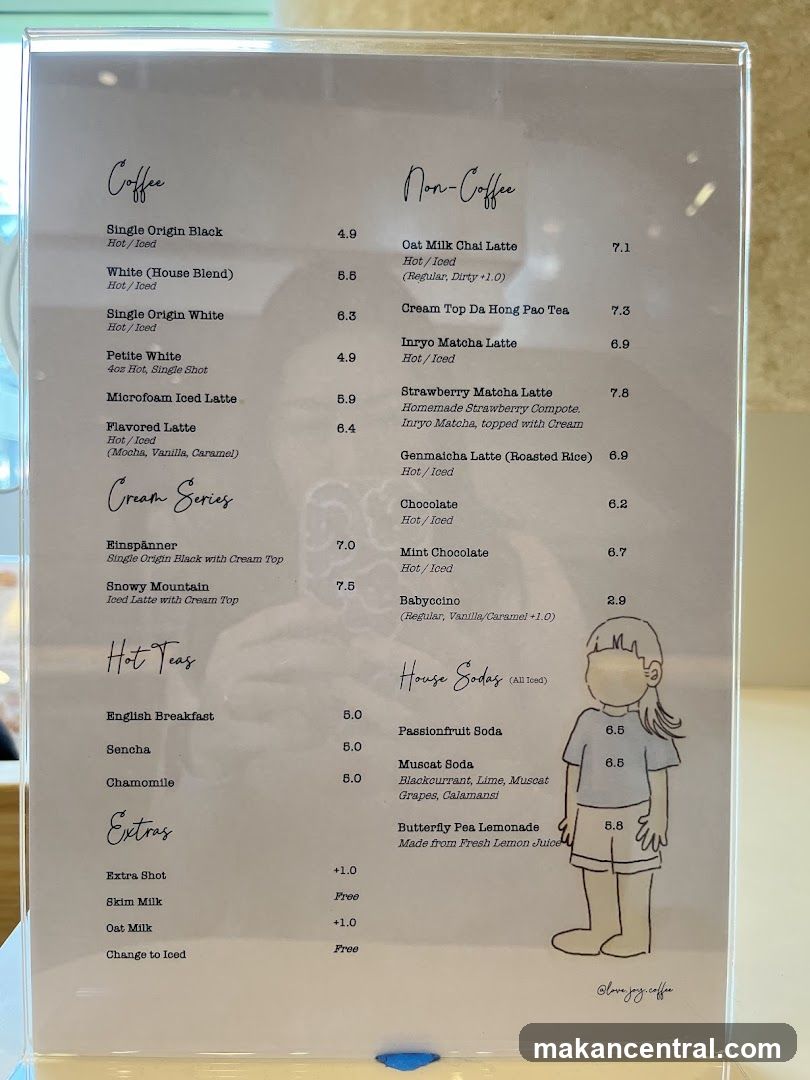 Coffee
Single Origin Black 4.9
Hot / Iced
White (House Blend) 5.5
Hot / Iced
Single Origin White 6.3
Hot / Iced
Petite White 4.9
4oz Hot, Single Shot
Microfoam Iced Latte 5.9
Flavored Latte 6.4
Hot / Iced
(Mocha, Vanilla, Caramel)
Cream Series
Einspänner 7.0
Single Origin Black with Cream Top
Snowy Mountain 7.5
Iced Latte with Cream Top
Hot Teas
English Breakfast 5.0
Sencha 5.0
Chamomile 5.0
Extras
Extra Shot +1.0
Skim Milk Free
Oat Milk +1.0
Change to Iced Free
Non-Coffee
Oat Milk Chai Latte 7.1
Hot / Iced
(Regular, Dirty +1.0)
Cream Top Da Hong Pao Tea 7.3
Inryo Matcha Latte 6.9
Hot / Iced
Strawberry Matcha Latte 7.8
Homemade Strawberry Compote.
Inryo Matcha, topped with Cream
Genmaicha Latte (Roasted Rice) 6.9
Hot / Iced
Chocolate 6.2
Hot / Iced
Mint Chocolate 6.7
Hot / Iced
Babyccino 2.9
(Regular, Vanilla/Caramel +1.0)
House Sodas (All Iced)
Passionfruit Soda 6.5
Muscat Soda 6.5
Blackcurrant, Lime, Muscat
Grapes, Calamansi
Butterfly Pea Lemonade 5.8
Made from Fresh Lemon Juice
@love.joy.coffee
makancentral.com